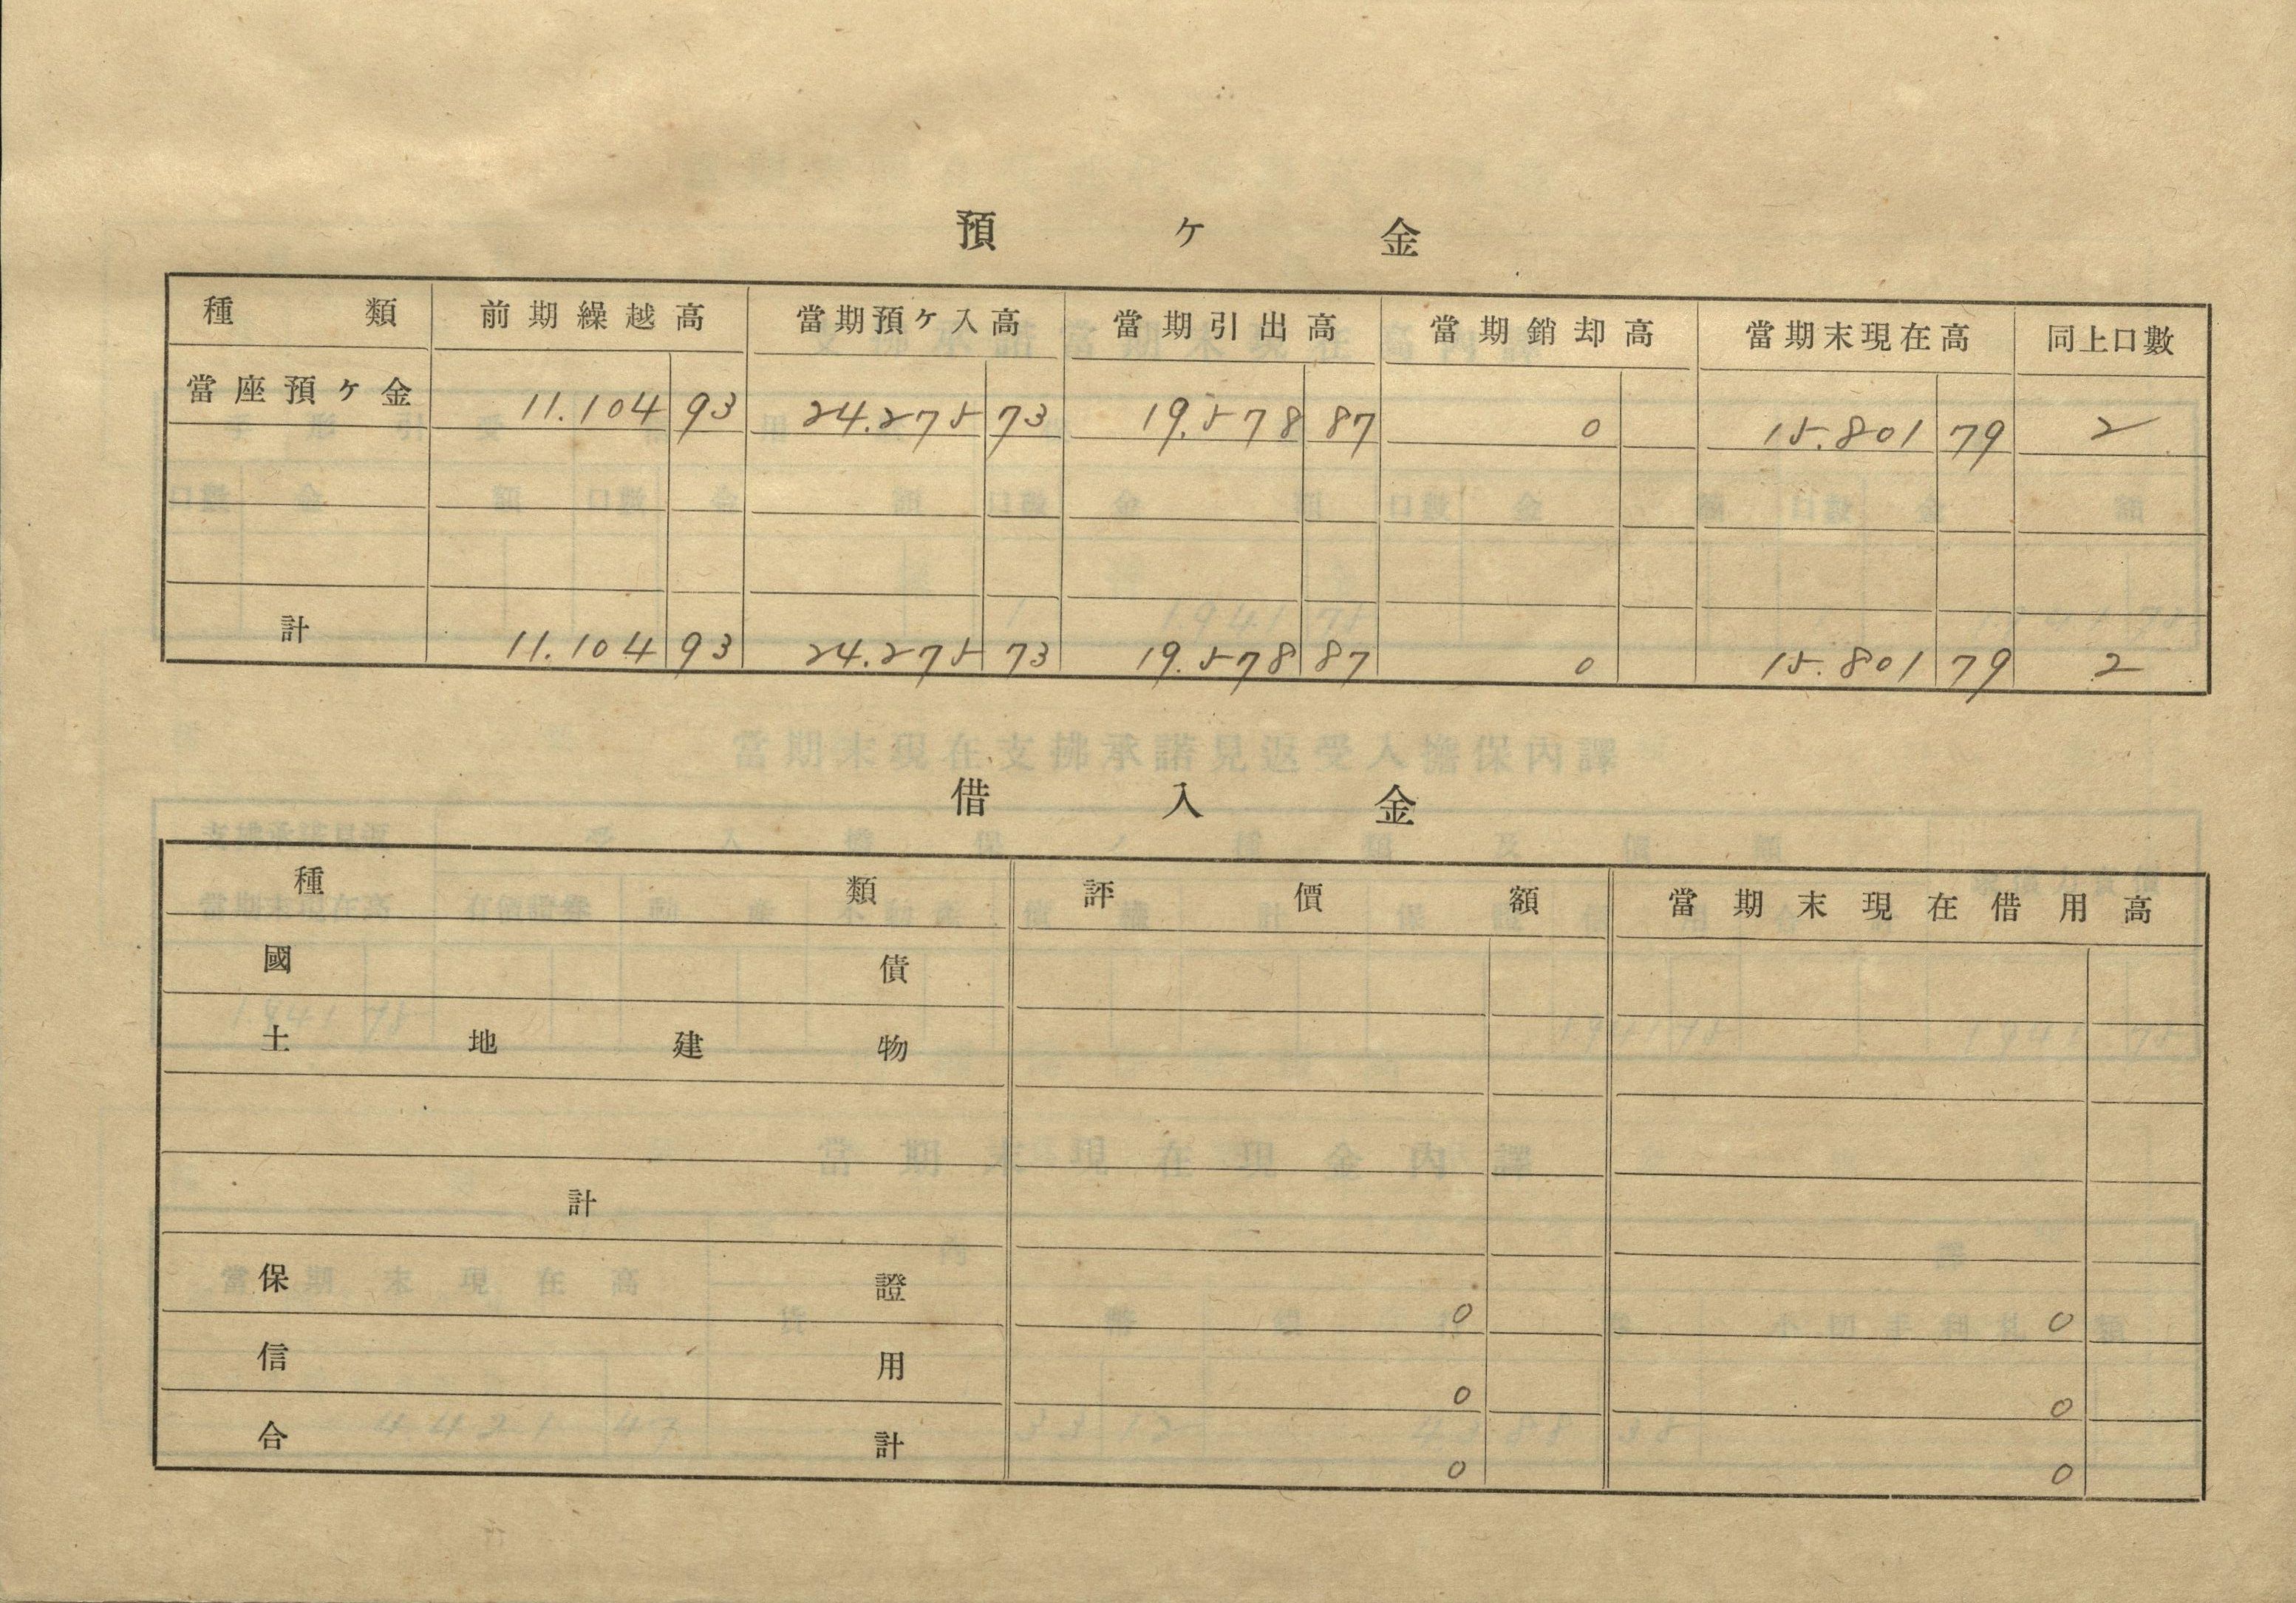 預ケ金
種類 前期繰越高 當期預ケ入高 當期引出高 當期銷却高 當期末現在高 同上口數
當座預ケ金 11.104 93 24.275 73 19.578 87 0 15.801 79 2
計 11.104 93 24.275 73 19.578 87 0 15.801 79 2
借入金
種類 評價額 當期末現在借用高
國債
土地建物
計
保證 0 0
信用 0 0
合計 0 0